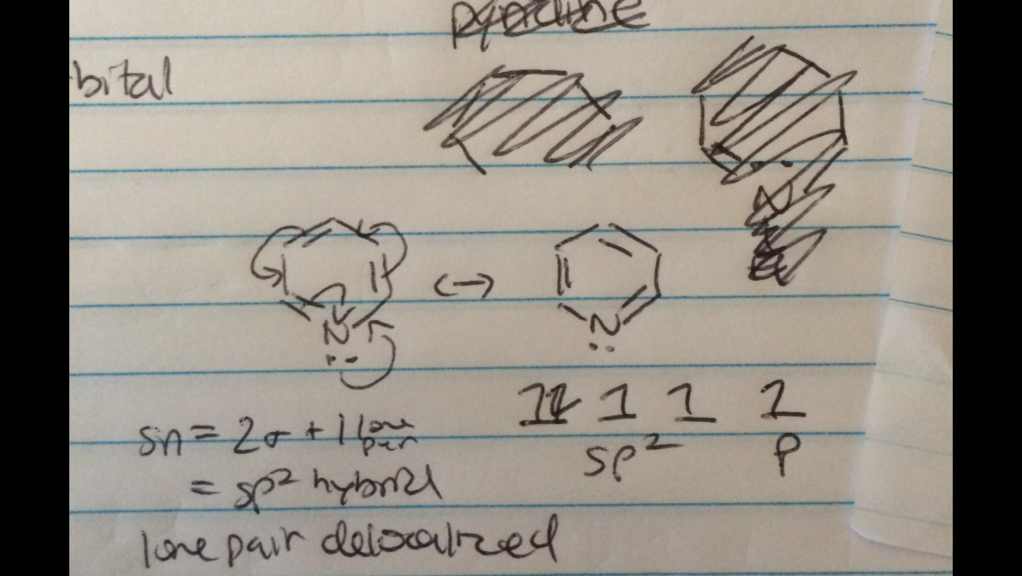 pyridine
bital
N
N
N
sn = 2σ + 1 lone pair
1↿⇂ 1 1 1
sp² p
= sp² hybrid
lone pair delocalized